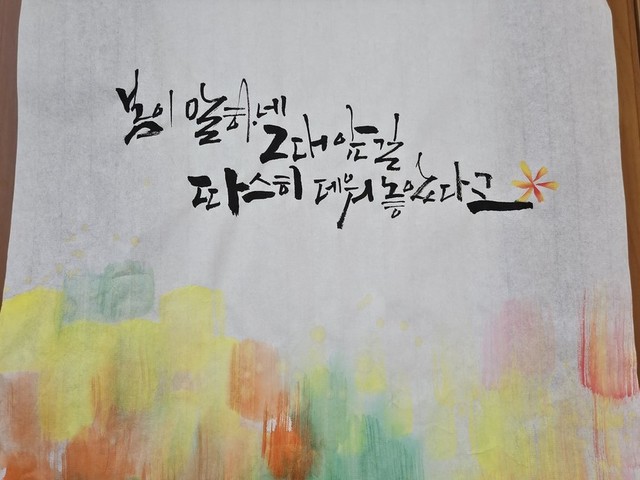 봄이 말하네
그대 앞길
따스히 데워 놓았다고